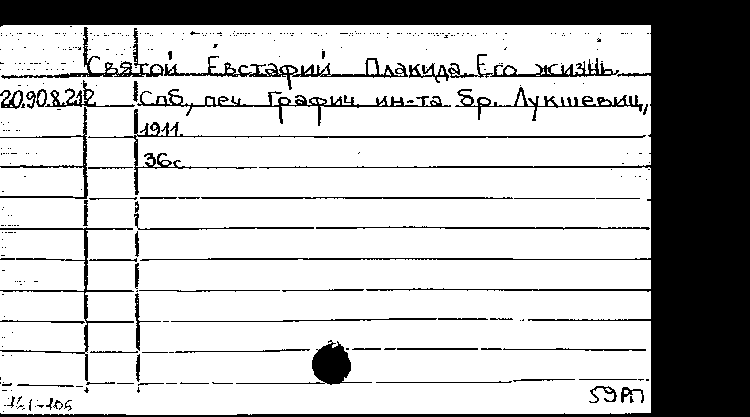 Святой Евстафий Плакида. Его жизнь.
20.90.8.212 Спб., печ. Графич. ин-та бр. Лукшевиц,
1911.
36с.
59РП